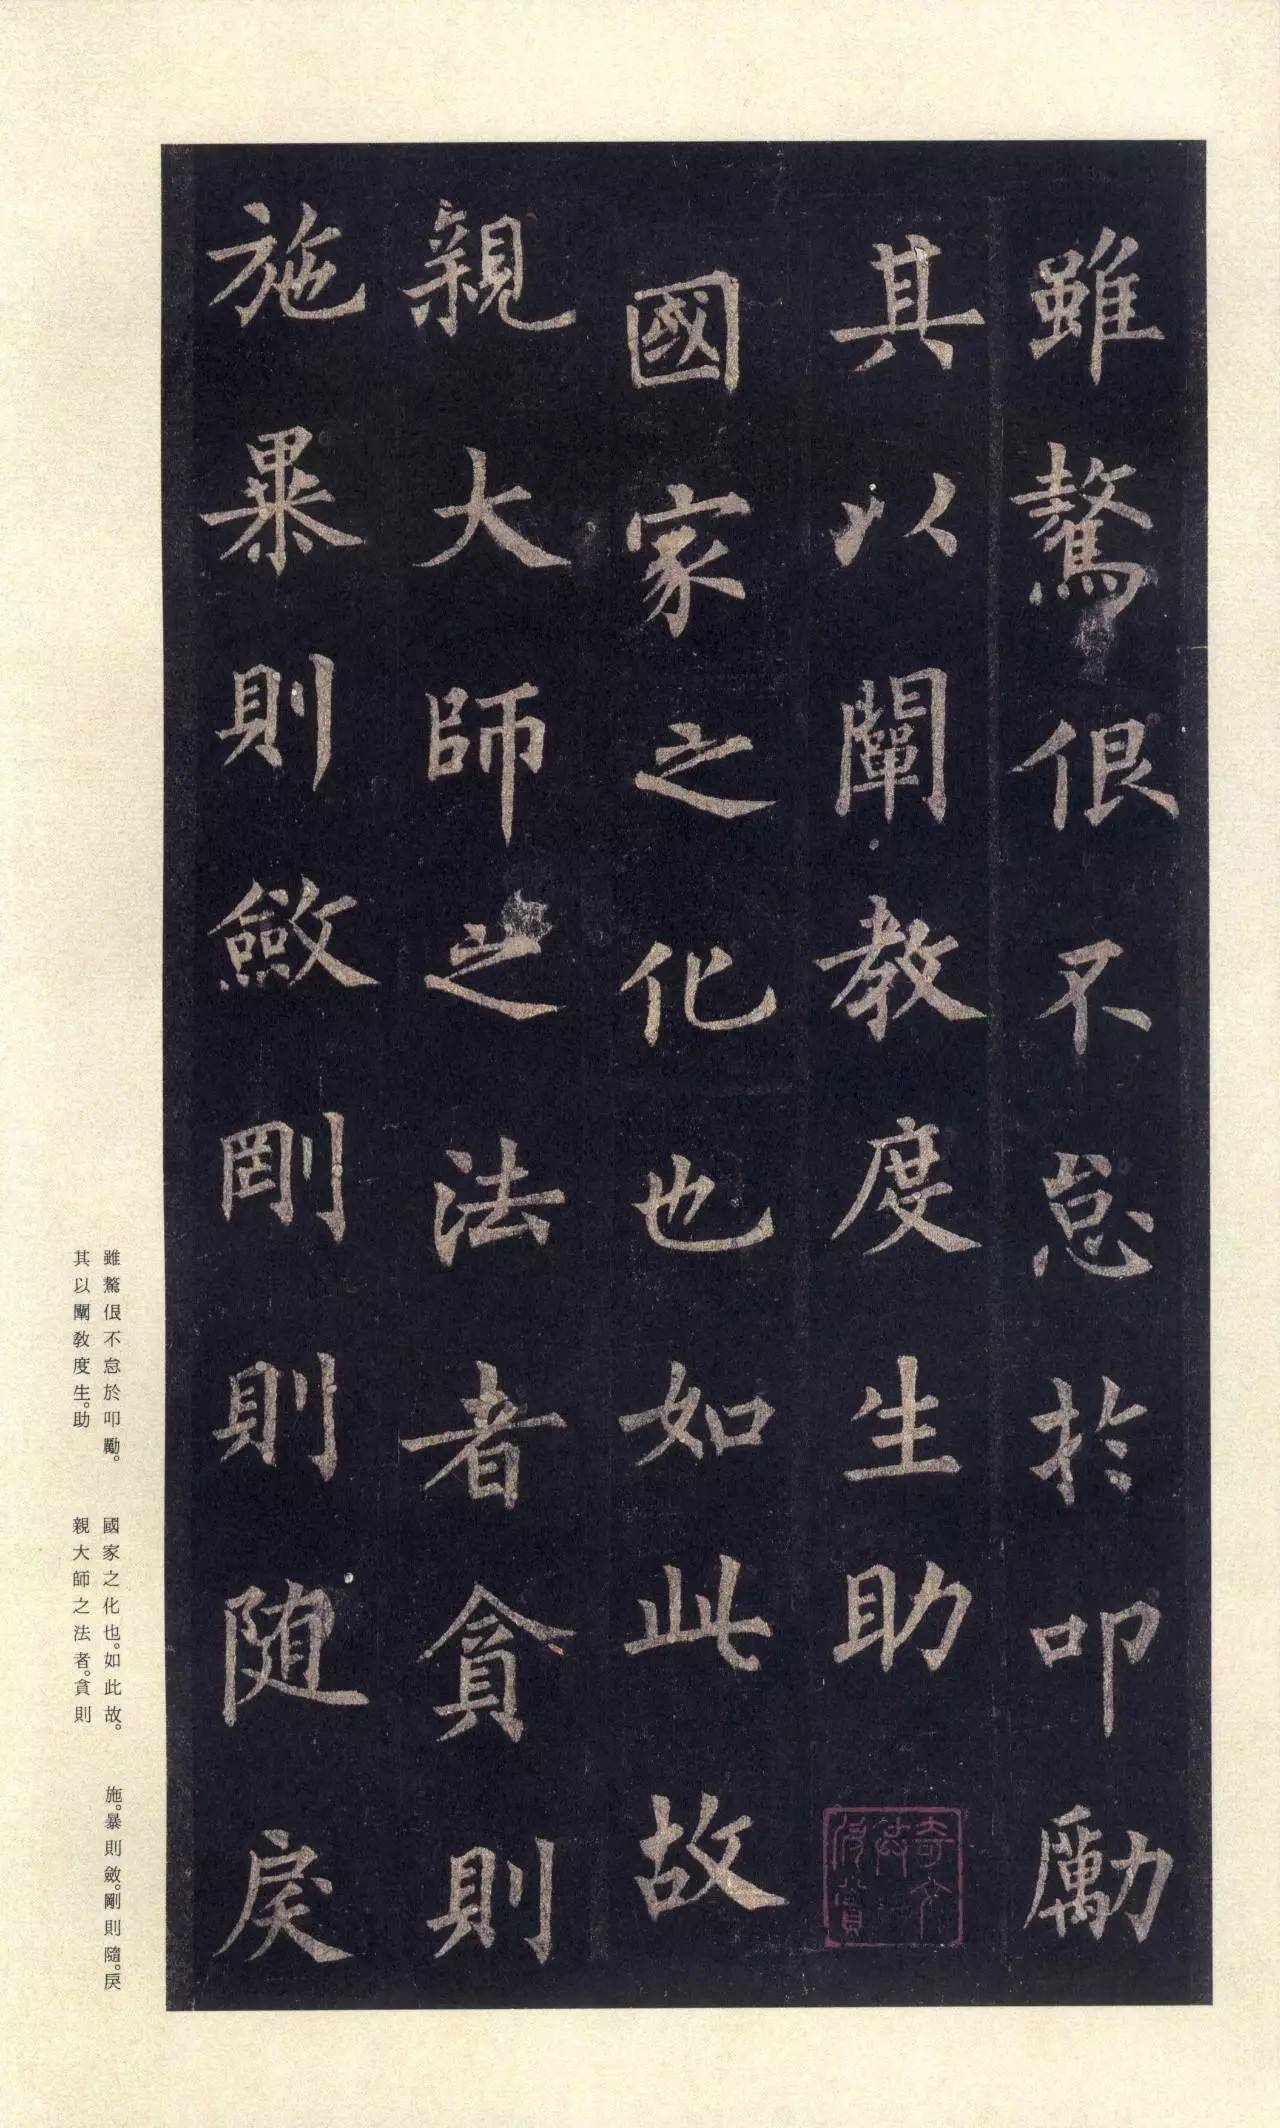 雖驁佷不怠於叩勵
其以闡教度生助
國家之化也如此故
親大師之法者貪則
施暴則斂剛則随戾
雖驁佷不怠於叩勵。
其以闡教度生。助
國家之化也。如此故。
親大師之法者。貪則
施。暴則斂。剛則隨。戾